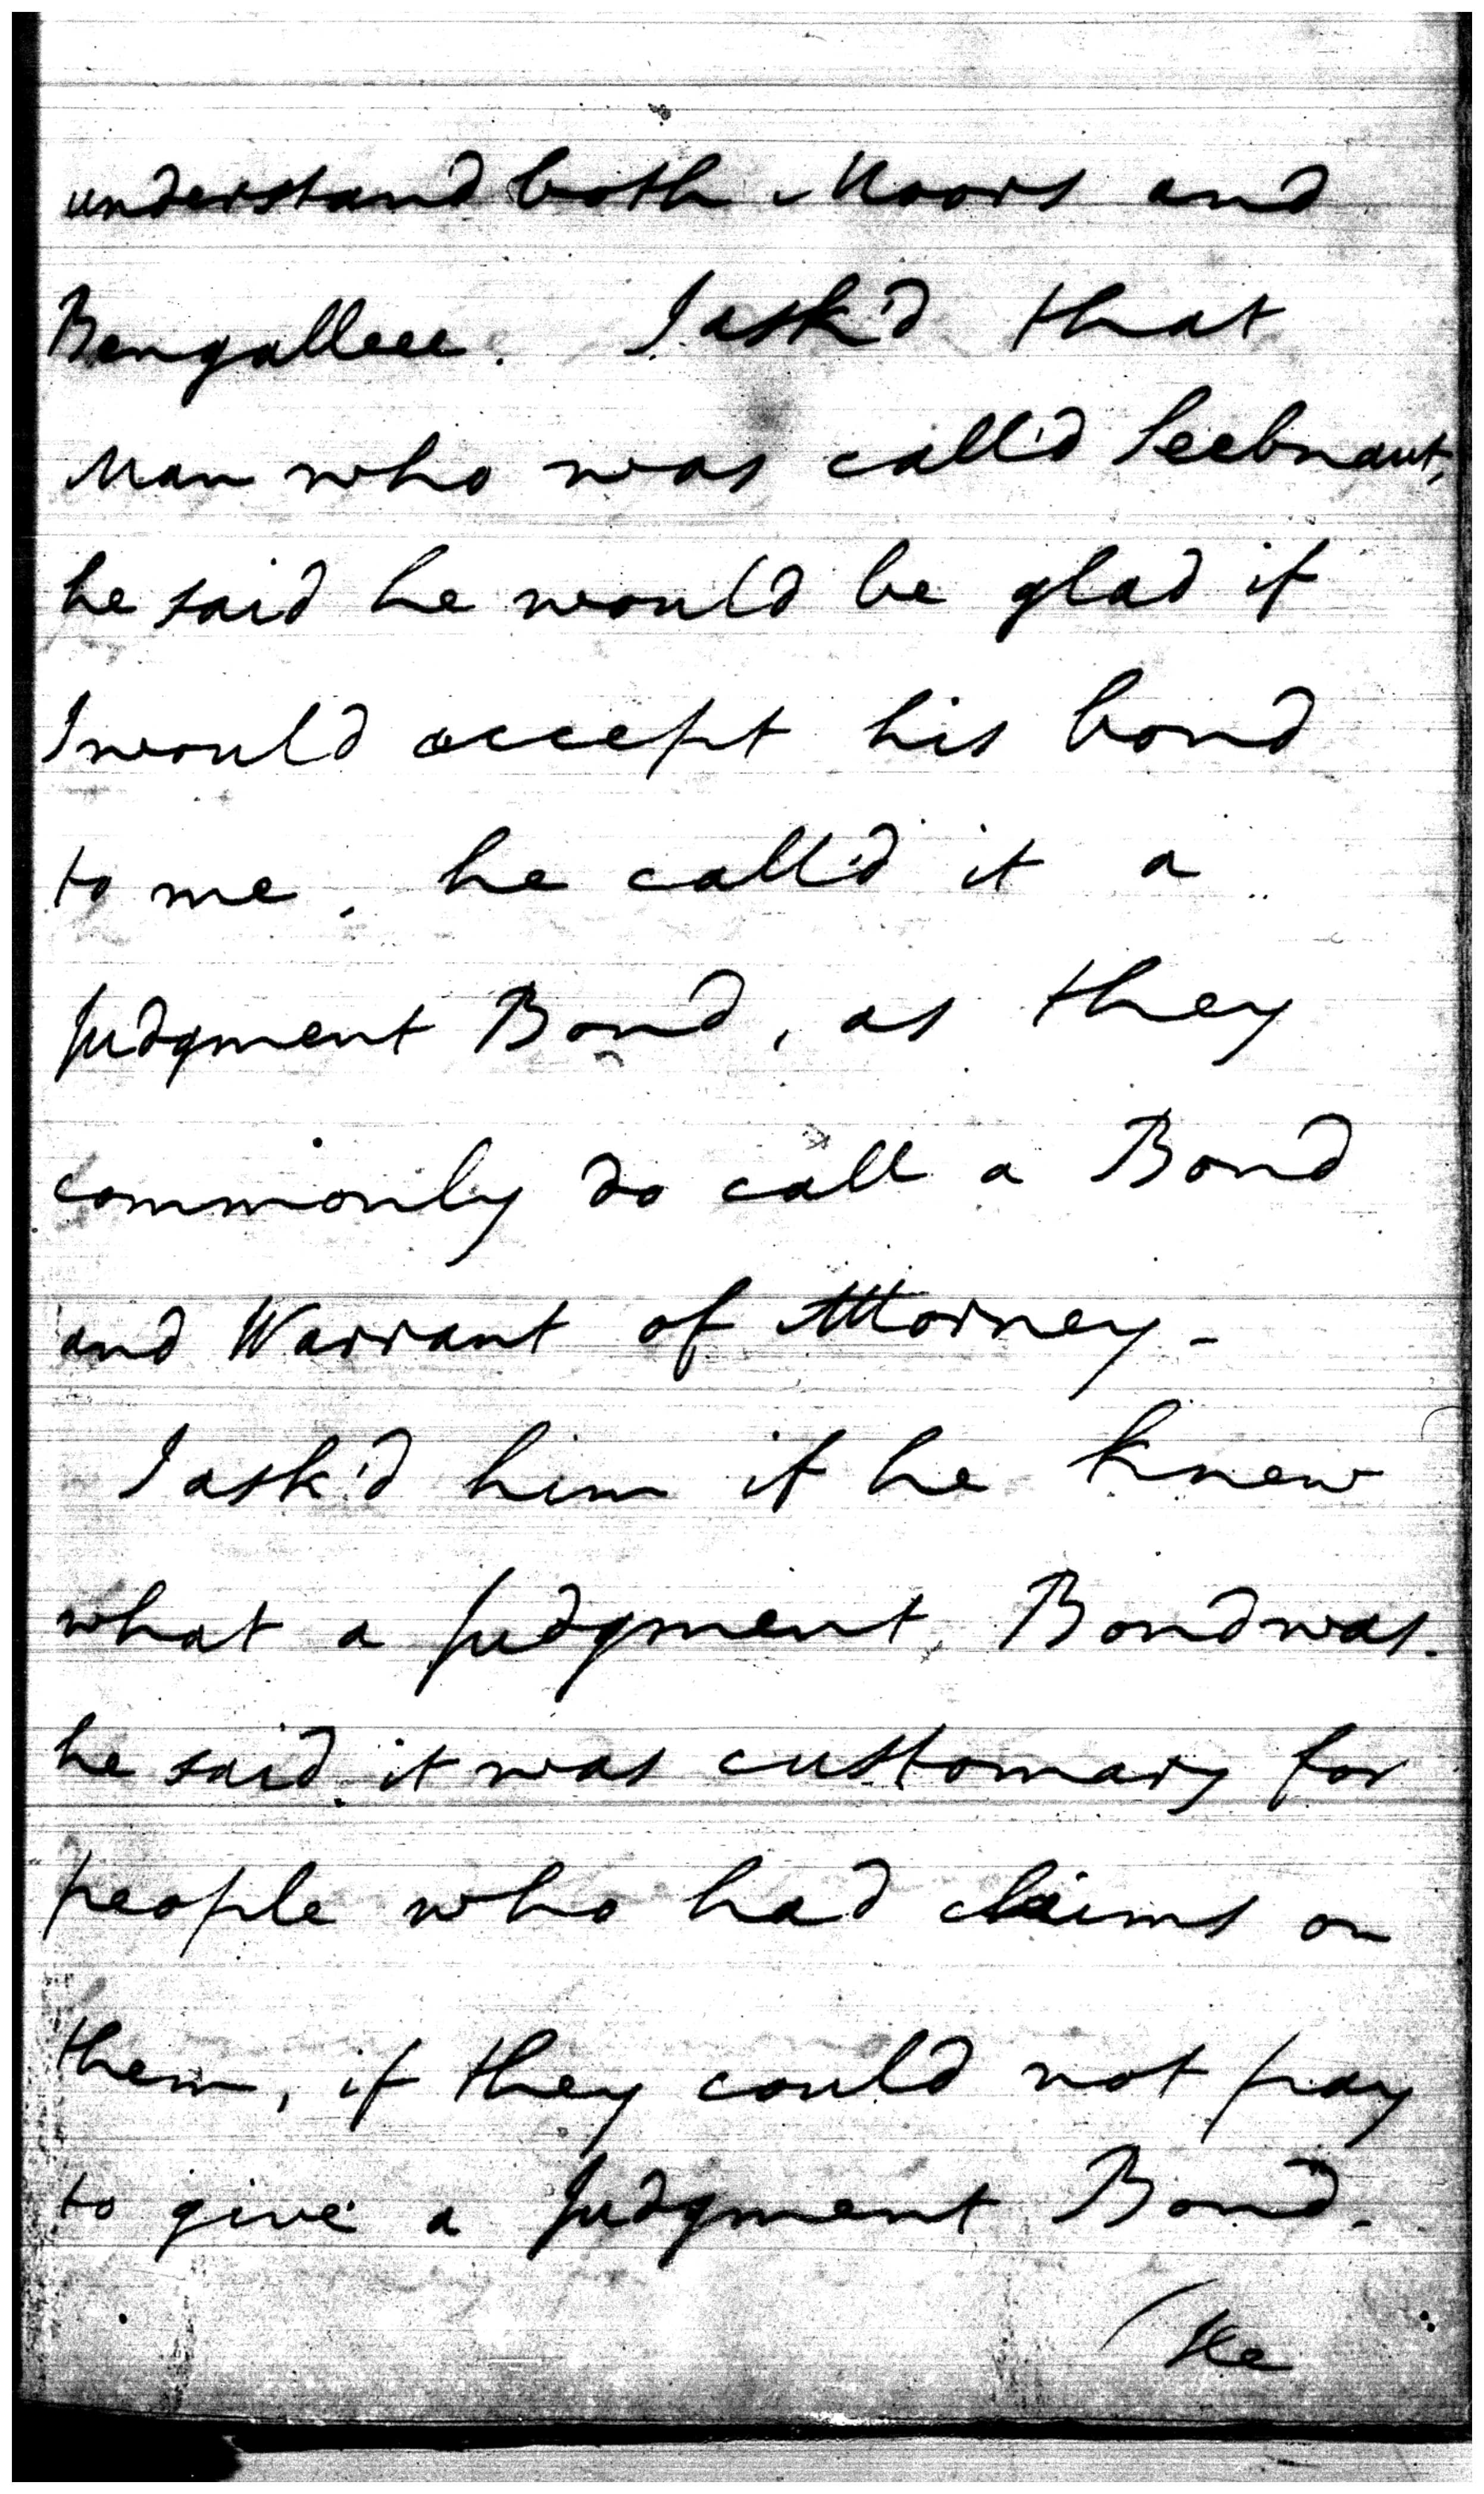 understand both Moors and
Bengalleee. I ask'd that
Man who was call'd Seebnaut,
he said he would be glad if
I would accept his bond
to me, he call'd it a
Judgment Bond, as they
commonly do call a Bond
and Warrant of Attorney -
I ask'd him if he knew
what a Judgment Bond was.
he said it was customary for
people who had claims on
them, if they could not pay
to give a Judgment Bond.
He